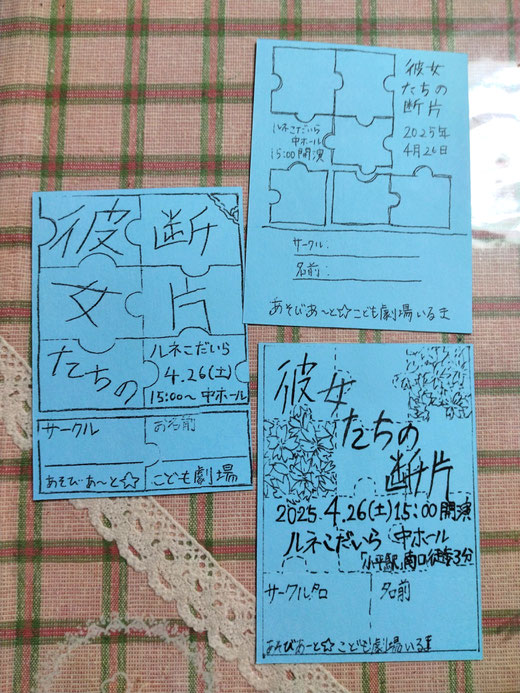 彼女
たちの
断片
2025年
4月26日
ルネこだいら
中ホール
15:00開演
サークル:
名前:
あそびあ〜と☆こども劇場いるま
彼女たちの
断片
ルネこだいら
4.26(土)
15:00〜 中ホール
サークル
お名前
あそびあ〜と☆こども劇場
彼女
たちの
断片
2025.4.26(土)15:00開演
ルネこだいら 中ホール
「小平駅」南口徒歩3分
サークル名
名前
あそびあーと☆こども劇場いるま